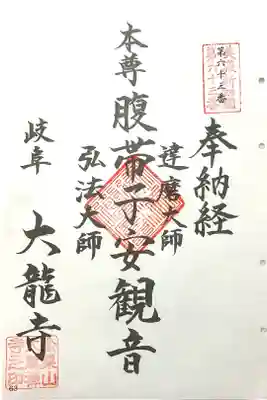 第六十三番
奉納経
達磨大師
本尊 腹帯子安観音
弘法大師
岐阜 大龍寺
63